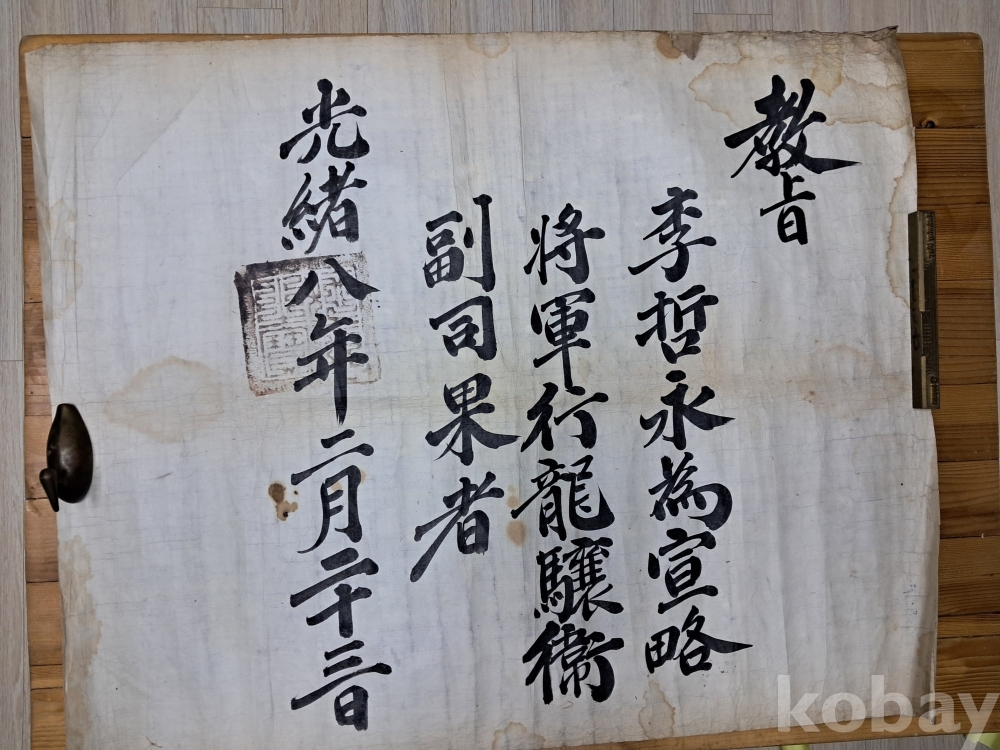 教旨
李哲永為宣略
將軍行龍驤衛
副司果者
光緖八年二月二十三日
kobay